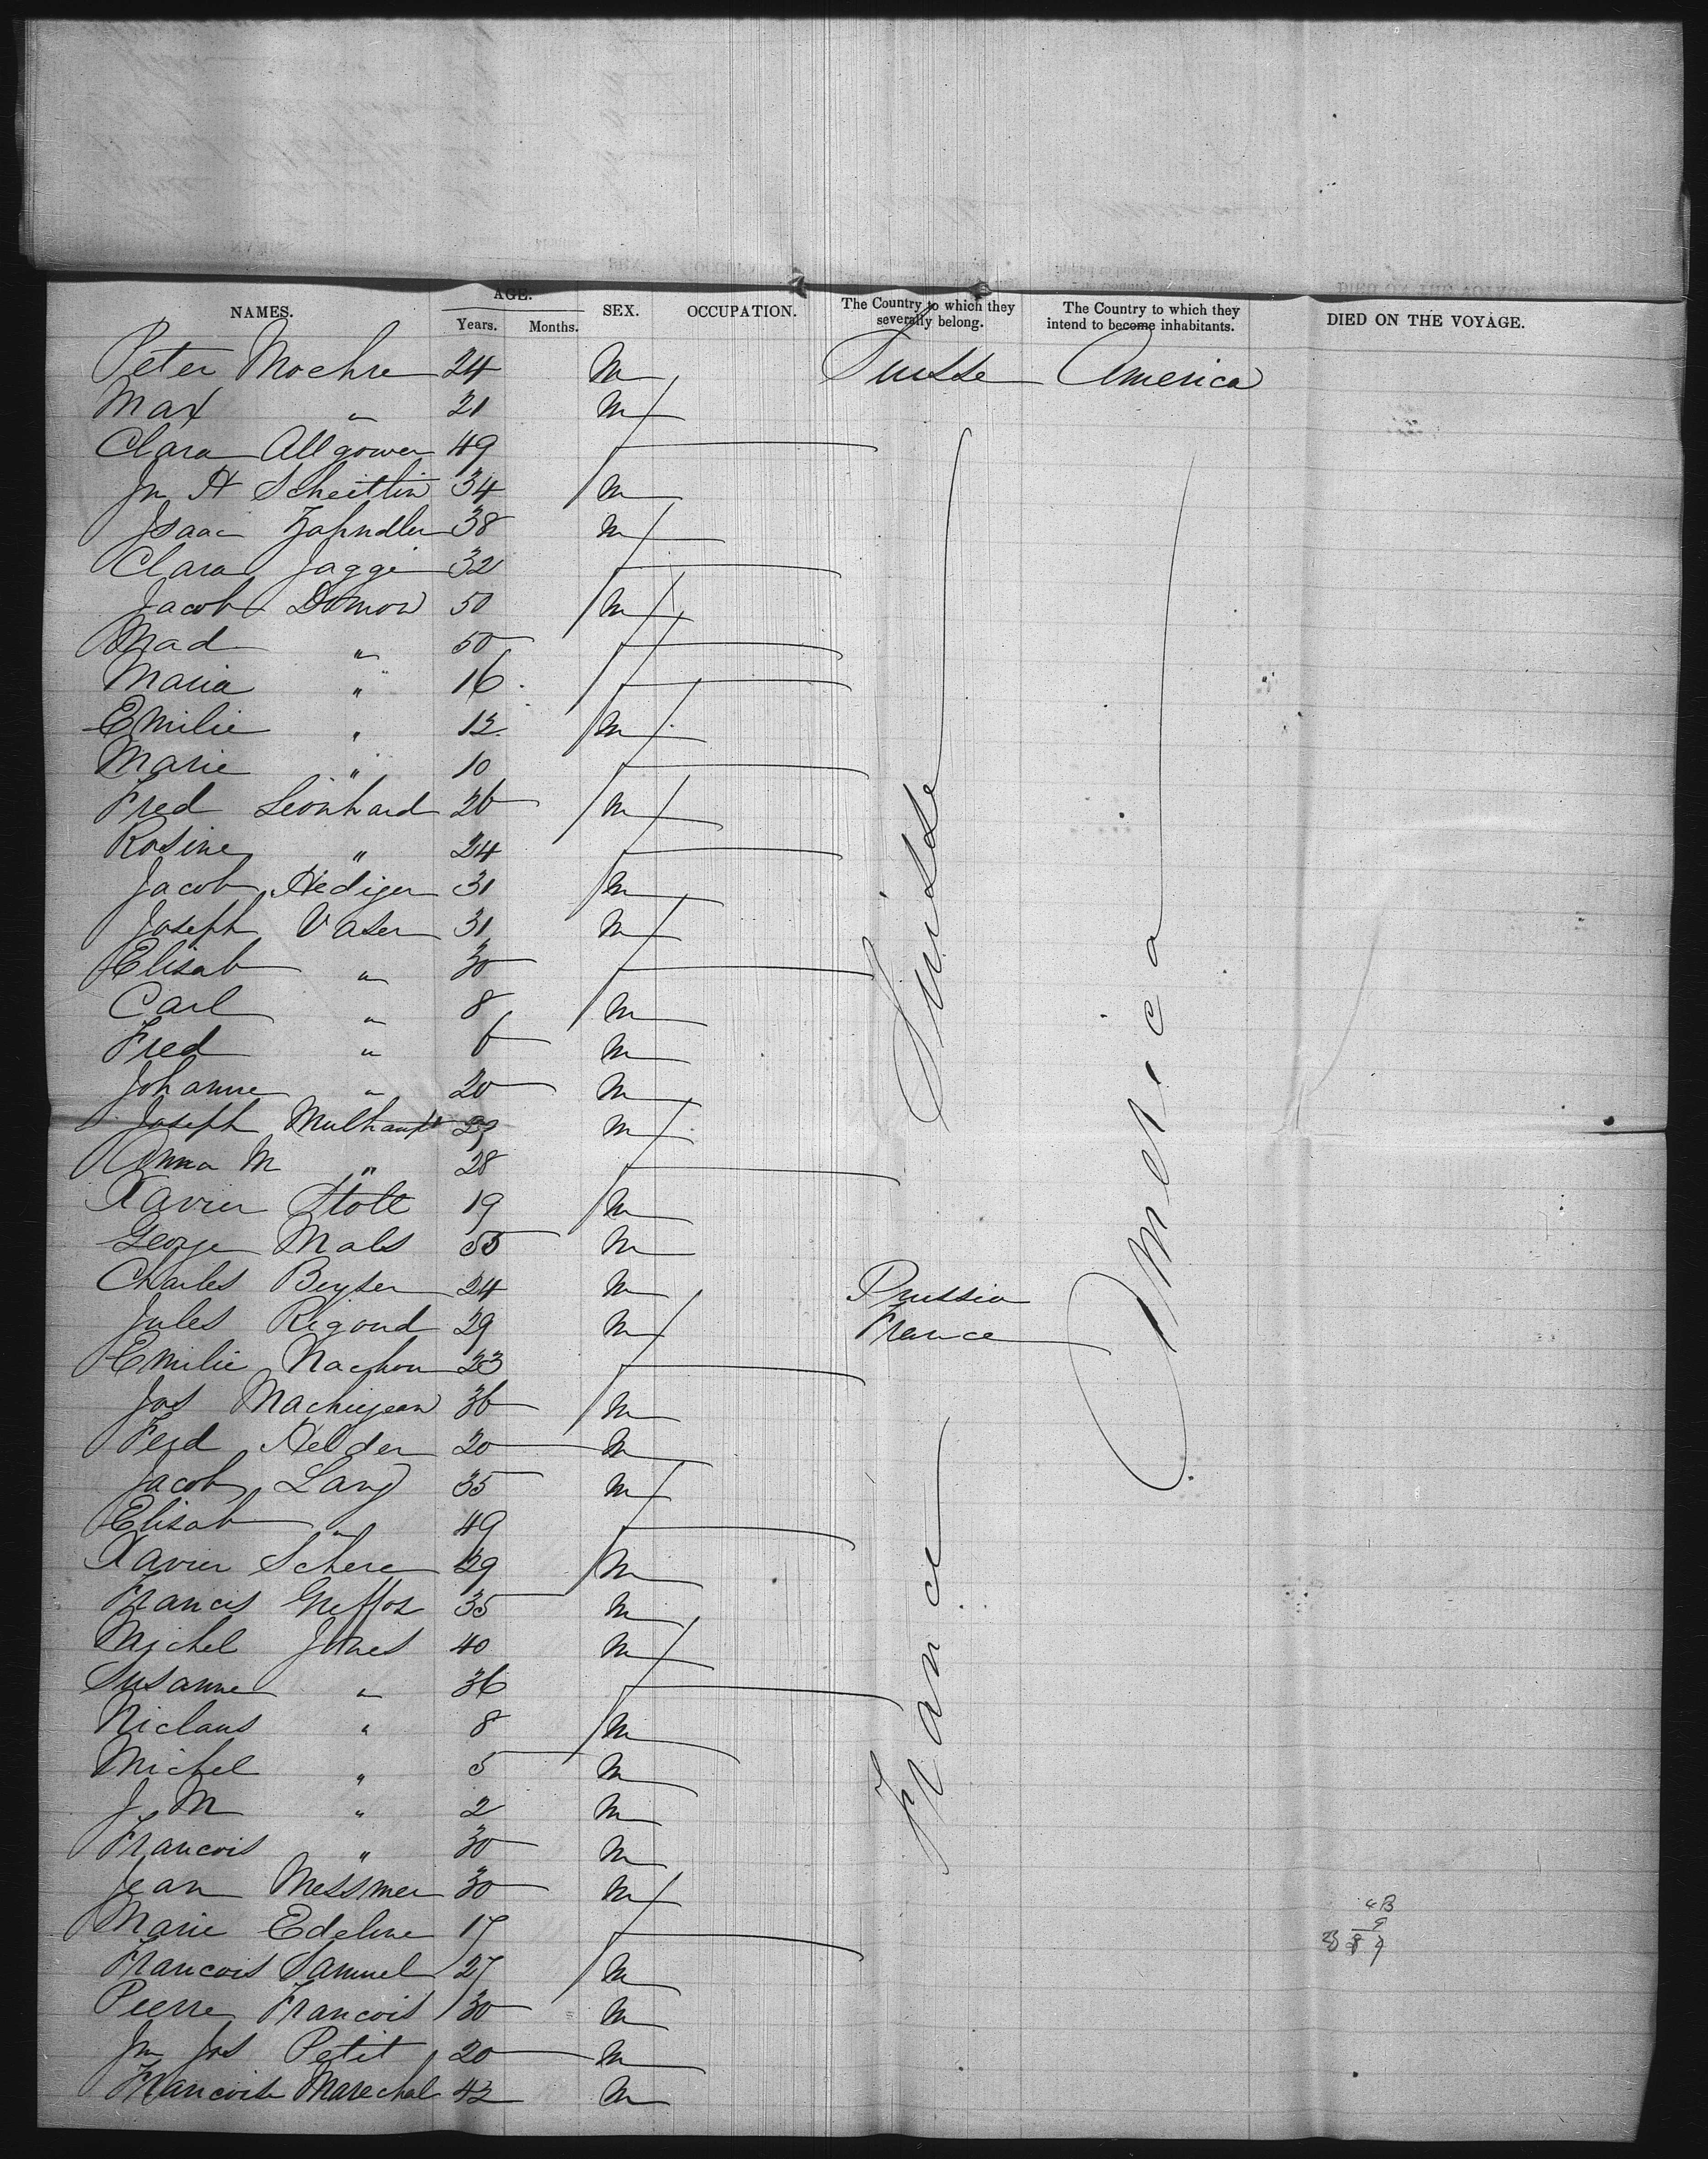 NAMES. AGE. SEX. OCCUPATION. The Country to which they severally belong. The Country to which they intend to become inhabitants. DIED ON THE VOYAGE.
Years. Months.
Peter Moehre 24 m Suisse America
Max " 21 m
Clara Allgower 49 f
Jn H Scheitlin 34 m
Isaac Zahndler 38 m
Clara Jaggi 32 f
Jacob Domon 50 m
Mad " 50 f
Maria " 16 f
Emilie " 12 m
Marie " 10 f
Fred Leonhard 26 m
Rosine " 24 f
Jacob Hediger 31 m
Joseph Vaser 31 m
Elisab " 30 f
Carl " 8 m
Fred " 6 m
Johanne " 20 m
Joseph Mulhaupt 29 m
Anna M " 28 f
Xavier Stoll 19 m
George Mals 55 m
Suisse
Charles Beyser 24 m Prussia
Jules Rigoud 29 m France
America
Emilie Nachon 23 f
Jos Machiejean 36 m
Ferd Helder 20 m
Jacob Lang 35 m
Elisab " 49 f
Xavier Schere 29 m
Francis Greffoz 35 m
Michel Jones 40 m
Susanne " 36 f
Niclaus " 8 m
Michel " 5 m
J. M " 2 m
Francois " 30 m
France
Jean Messmer 30 m
Marie Edeline 17 f
Francois Samuel 27 m
Pierre Francois 30 m
Jn Jos Petit 20 m
Francois Marechal 42 m